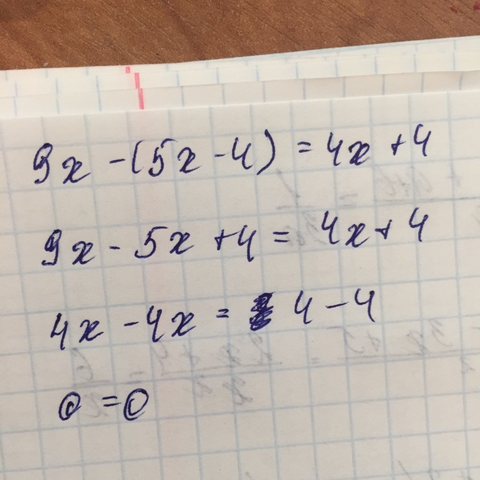 9x - (5x - 4) = 4x + 4
9x - 5x + 4 = 4x + 4
4x - 4x = 4 - 4
0 = 0